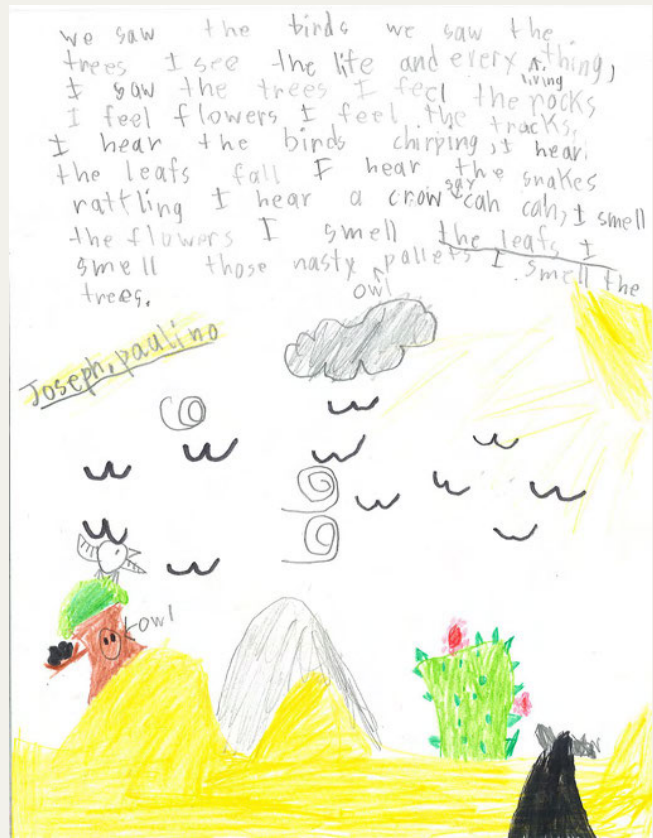 we saw the birds we saw the
trees I see the life and every living thing,
I saw the trees I feel the rocks
I feel flowers I feel the tracks,
I hear the birds chirping, I hear
the leafs fall I hear the snakes
rattling I hear a crow say cah cah, I smell
the flowers I smell the leafs I
smell those nasty owl pallets I smell the
trees.
Joseph, paulino
owl